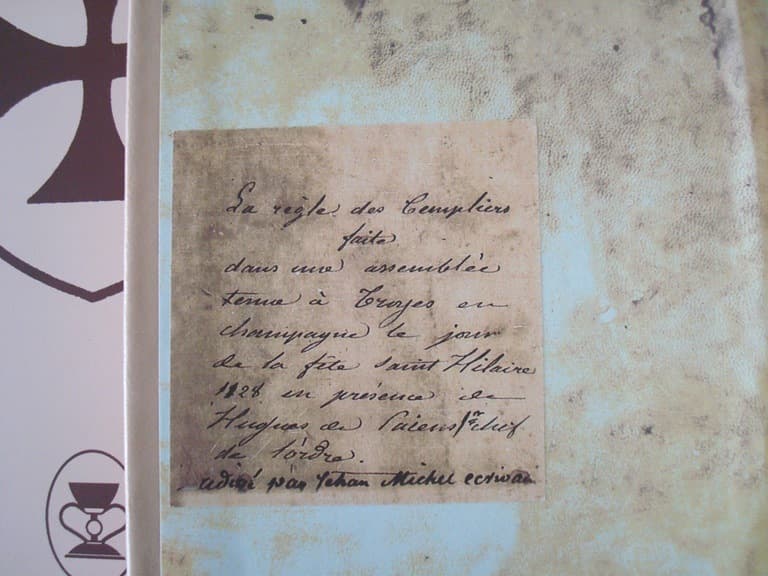 La règle des Templiers
faite
dans une assemblée
tenue à Troyes en
champagne le jour
de la fête Saint Hilaire
1128 en présence de
Hugues de Paiens 1er chef
de l'ordre.
par Jehan Michel ecrivain